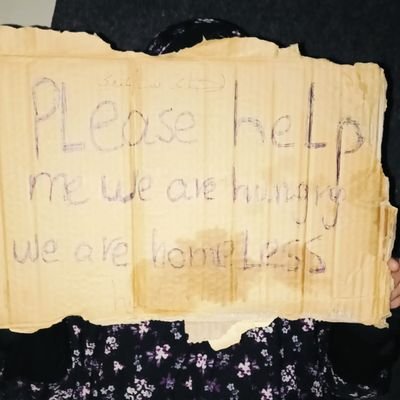 PLease heLp
me we are hungry
we are homeLess